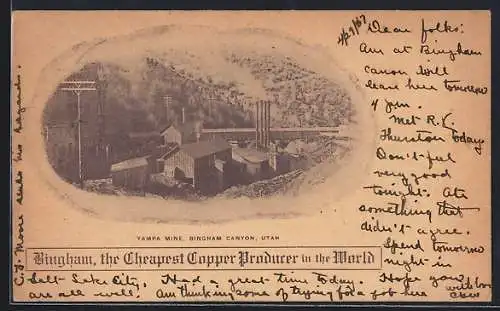 4/29/07
Dear folks:
Am at Bingham
canon will
leave here tomorrow
4 pm.
Met R.V.
Thurston today
Don't feel
very good
tonight. Ate
something that
didn't agree.
Spend tomorrow
night in
Salt Lake City. Had a great time today. Hope you
are all well. Am thinking some of trying for a job here
C.J. Moore sends his regards.
YAMPA MINE, BINGHAM CANYON, UTAH
Bingham, the Cheapest Copper Producer in the World